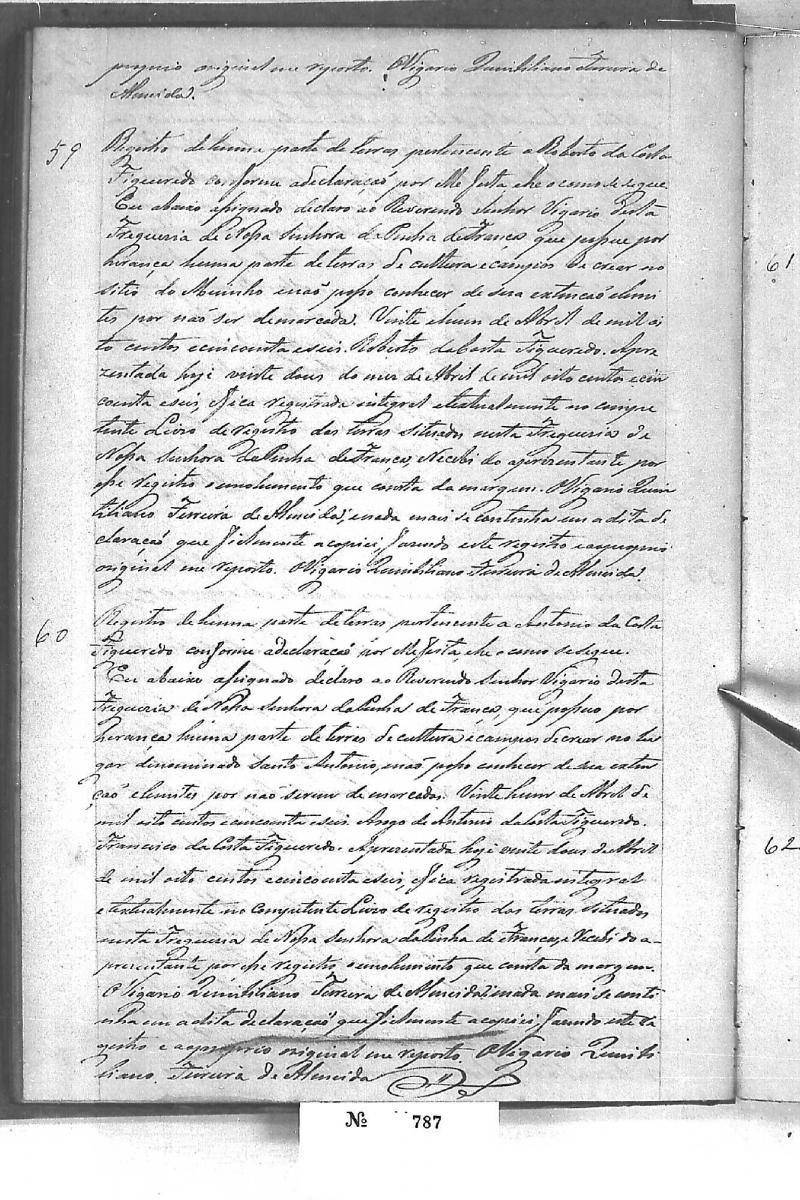 proprio original me reporto. O Vigario Quintiliano Ferreira de
Almeida.
59
Registro de huma parte de terras pertencente a Roberto da Costa
Figueredo conforme a declaraçaõ por elle feita, e he o como se segue.
Eu abaxo assignado declaro ao Reverendo Senhor Vigario desta
Freguesia de Nossa Senhora da Penha de França que possue por
herança huma parte de terras de cultura e campos de crear no
sitio do Moinho e naõ posso conhecer de sua extençaõ e limi
tes por naõ ser demarcada. Vinte e hum de Abril de mil oi
to centos e cincoenta e seis. Roberto da Costa Figueredo. Apre
zentada hoje vinte dous do mez de Abril de mil oito centos e cin
coenta e seis, e fica registrada integral e textualmente no compe
tente Livro de registro das terras situadas nesta Freguesia de
Nossa Senhora da Penha de França, Recebi do aprezentante por
esse registro o emolumento que consta da margem. O Vigario Quin
tiliano Ferreira de Almeida, e nada mais se continha em a dita de
claraçaõ que fielmente a copiei, fazendo este registro e ao proprio
original me reporto. O Vigario Quintiliano Ferreira de Almeida.
60
Registro de huma parte de terras pertencente a Antonio da Costa
Figueredo conforme a declaraçaõ por elle feita, e he o como se segue.
Eu abaixo assignado declaro ao Reverendo Senhor Vigario desta
Freguesia de Nossa Senhora da Penha de França, que possuo por
herança huma parte de terras de cultura e campos de crear no lu
gar denominado Santo Antonio, e naõ posso conhecer de sua exten
çaõ e limites por naõ serem demarcados. Vinte hum de Abril de
mil oito centos e cincoenta e seis. Arogo de Antonio da Costa Figueredo.
Francisco da Costa Figueredo. Aprezentada hoje vinte dous de Abril
de mil oito centos e cincoenta e seis, e fica registrada integral
e textualmente no Competente Livro de registro das terras situadas
nesta Freguesia de Nossa Senhora da Penha de França, e Recebi do a-
prezentante por esse registro, o emolumento que consta da margem.
O Vigario Quintiliano Ferreira de Almeida, e nada mais se conti
nha em a dita declaraçaõ que fielmente a copiei, fazendo este re
gistro e ao proprio original me reporto. O Vigario Quinti
liano Ferreira de Almeida
61
62
Nº 787